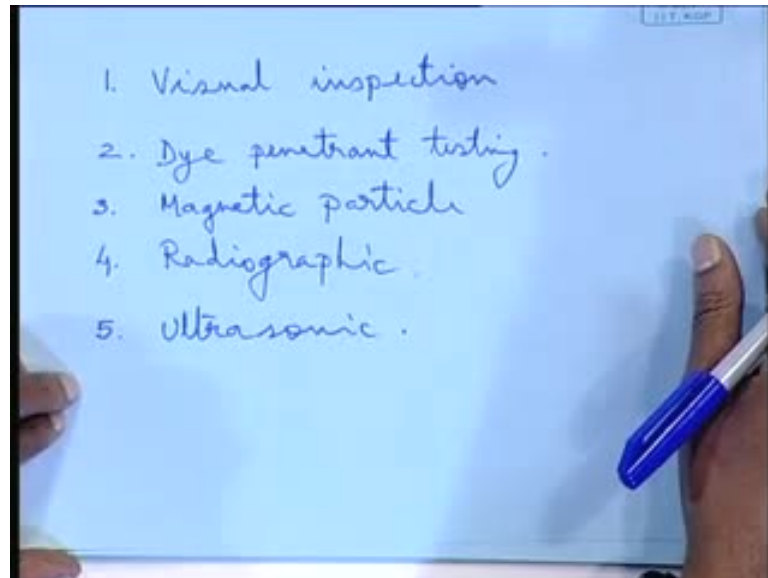 1. Visual inspection
2. Dye penetrant testing.
3. Magnetic particle
4. Radiographic.
5. Ultrasonic.